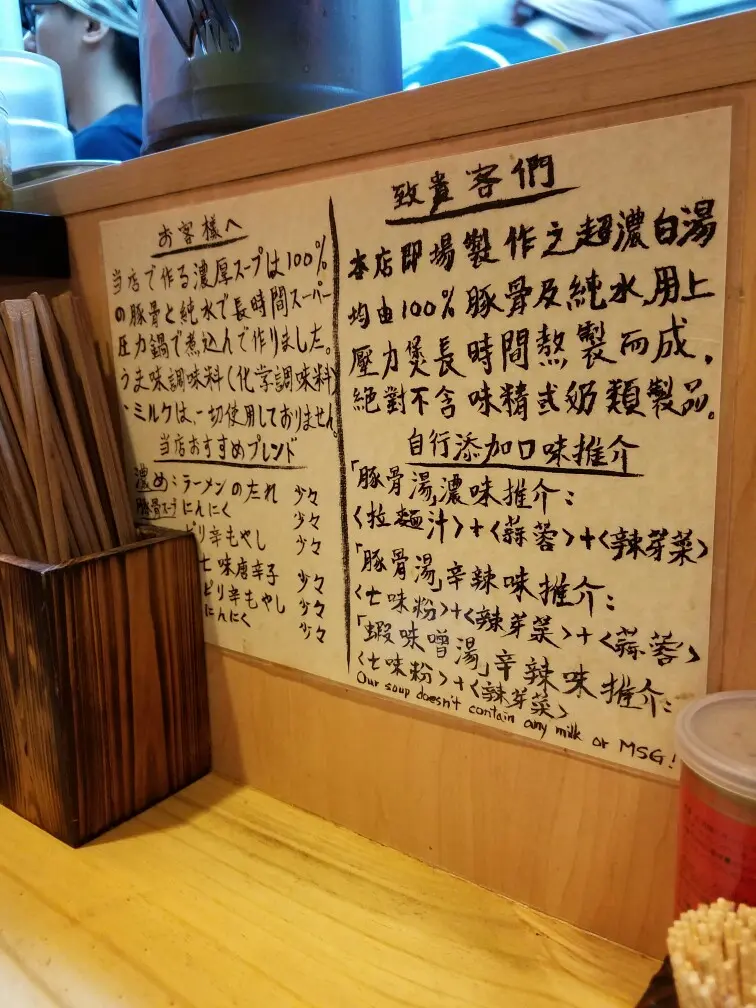 お客様へ
当店で作る濃厚スープは100%
の豚骨と純水で長時間スーパー
圧力鍋で煮込んで作りました。
うま味調味料(化学調味料)
・ミルクは、一切使用しておりません。
当店おすすめブレンド
濃め:ラーメンのたれ 少々
豚骨スープ にんにく 少々
ピリ辛もやし 少々
七味唐辛子 少々
ピリ辛もやし 少々
にんにく 少々
致貴客們
本店即場製作之超濃白湯
均由100%豚骨及純水,用上
壓力煲長時間熬製而成,
絕對不含味精或奶類製品。
自行添加口味推介
「豚骨湯」濃味推介:
〈拉麵汁〉+〈蒜蓉〉+〈辣芽菜〉
「豚骨湯」辛辣味推介:
〈七味粉〉+〈辣芽菜〉+〈蒜蓉〉
「蝦味噌湯」辛辣味推介:
〈七味粉〉+〈辣芽菜〉
Our soup doesn't contain any milk or MSG!